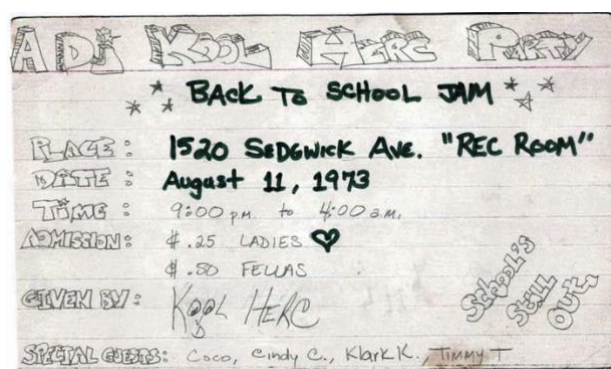 A DJ KOOL HERC PARTY
BACK TO SCHOOL JAM
PLACE: 1520 SEDGWICK AVE. "REC ROOM"
DATE: August 11, 1973
TIME: 9:00 p.m. to 4:00 a.m.
ADMISSION: $.25 LADIES ♥
$.50 FELLAS
GIVEN BY: KOOL HERC
SCHOOL'S
STILL
OUT
SPECIAL GUESTS: Coco, Cindy C., Klark K., Timmy T